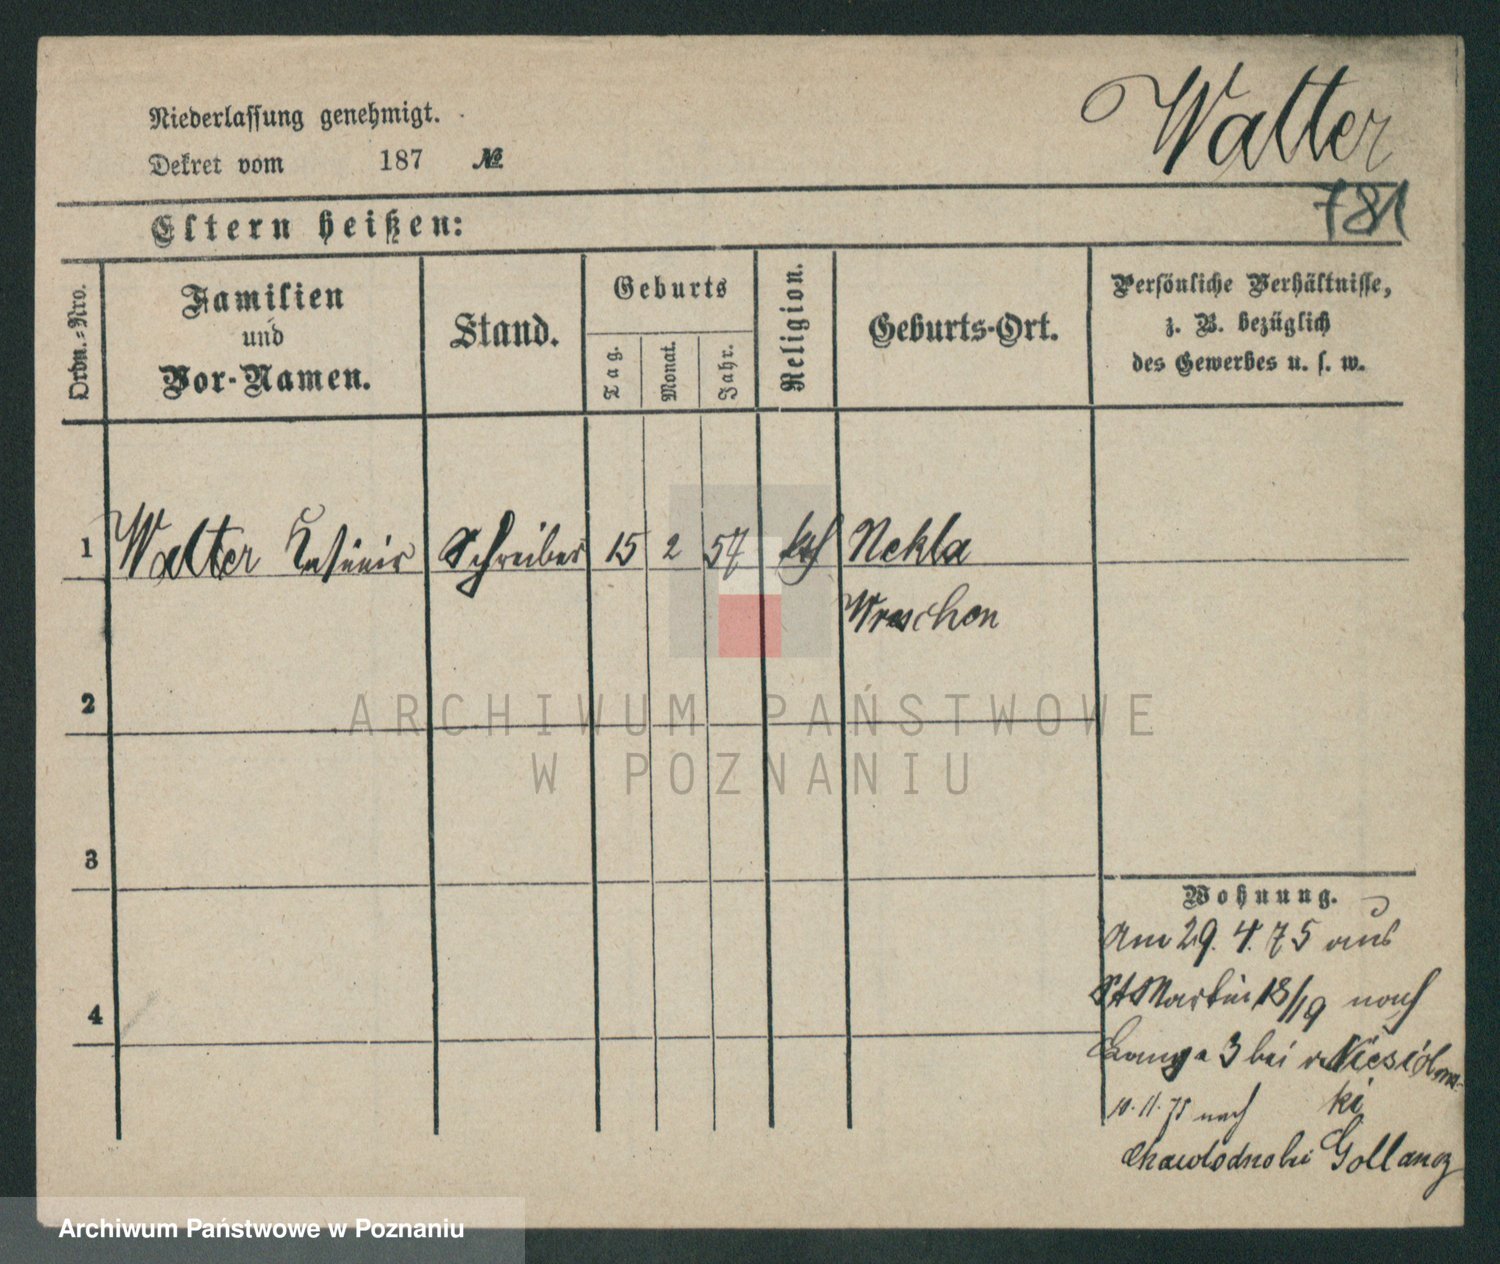 Niederlassung genehmigt.
Walter
Dekret vom 187 №
781
Eltern heißen:
Ordn.-Nro.
Familien
und
Vor-Namen.
Stand.
Geburts
Tag.
Monat.
Jahr.
Religion.
Geburts-Ort.
Persönliche Verhältnisse,
z. B. bezüglich
des Gewerbes u. s. w.
1 Walter Casimir Schreiber 15 2 57 kath Nekla
Wreschen
2
ARCHIWUM PAŃSTWOWE
W POZNANIU
3
Wohnung.
Am 29. 4. 75 aus
St Martin 18/19 nach
4
Lange 3 bei
ki
10. 11. 75 nach
Gollancz
Archiwum Państwowe w Poznaniu